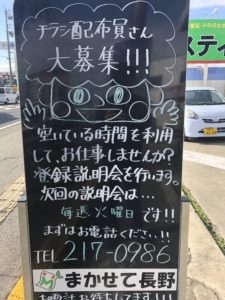 チラシ配布員さん
大募集!!!
空いている時間を利用
して、お仕事しませんか?
※登録説明会を行います。
次回の説明会は…
毎週火曜日です!!
まずはお電話ください!!
TEL 217-0986
まかせて長野
お電話お待ちしてます!!!
スティ